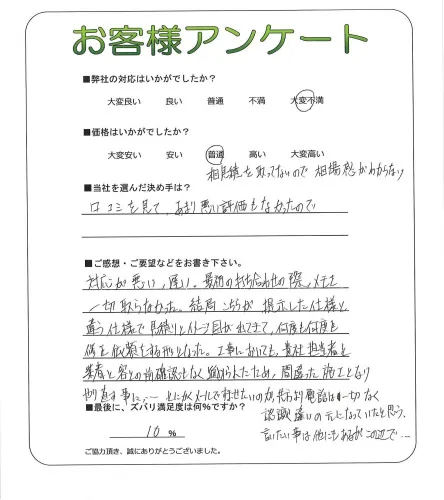 お客様アンケート
■弊社の対応はいかがでしたか?
大変良い 良い 普通 不満 大変不満
■価格はいかがでしたか?
大変安い 安い 普通 高い 大変高い
相見積を取ってないので 相場感がわからない
■当社を選んだ決め手は?
口コミを見て、あまり悪い評価もなかったので
■ご感想・ご要望などをお書き下さい。
対応が悪い、遅い。最初の打ち合わせの際、メモを
一切取らなかった。結局こちらが提示した仕様と
違う仕様で見積りとイメージ図がでてきて、何度も何度も
修正を依頼する形となった。工事においても、貴社担当者と
業者と客との前確認もなく進められたため、間違った施工となり
やり直す事に…。とにかくメールで済ませたいのか先方より電話は一切なく
認識違いの元になっていたと思う。
言いたい事は他にもあるがこの辺で…
■最後に、ズバリ満足度は何%ですか?
10 %
ご協力頂き、誠にありがとうございました。